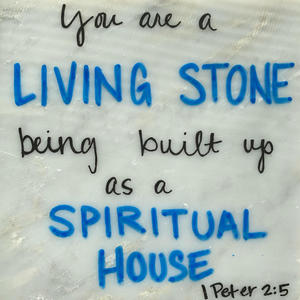 You are a
LIVING STONE
being built up
as a
SPIRITUAL
HOUSE
1 Peter 2:5